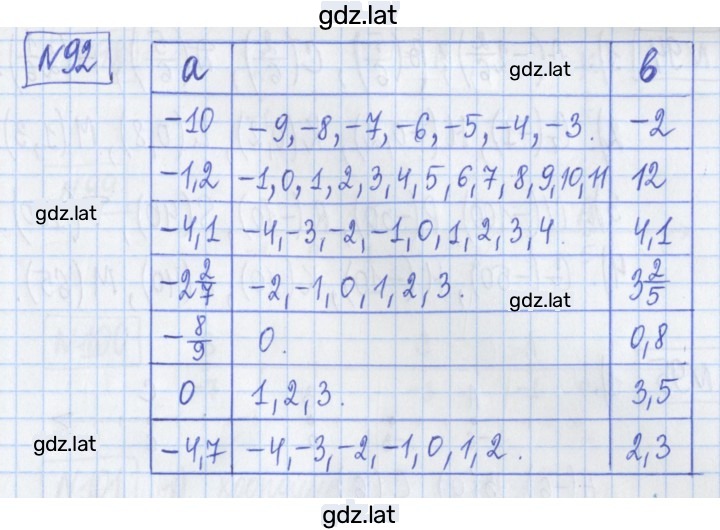 gdz.lat
№92
a gdz.lat b
-10 -9,-8,-7,-6,-5,-4,-3. -2
-1,2 -1,0,1,2,3,4,5,6,7,8,9,10,11 12
gdz.lat
-4,1 -4,-3,-2,-1,0,1,2,3,4. 4,1
-2 2/7 -2,-1,0,1,2,3. 3 2/5
gdz.lat
-8/9 0. 0,8
0 1,2,3. 3,5
gdz.lat
-4,7 -4,-3,-2,-1,0,1,2. 2,3
gdz.lat